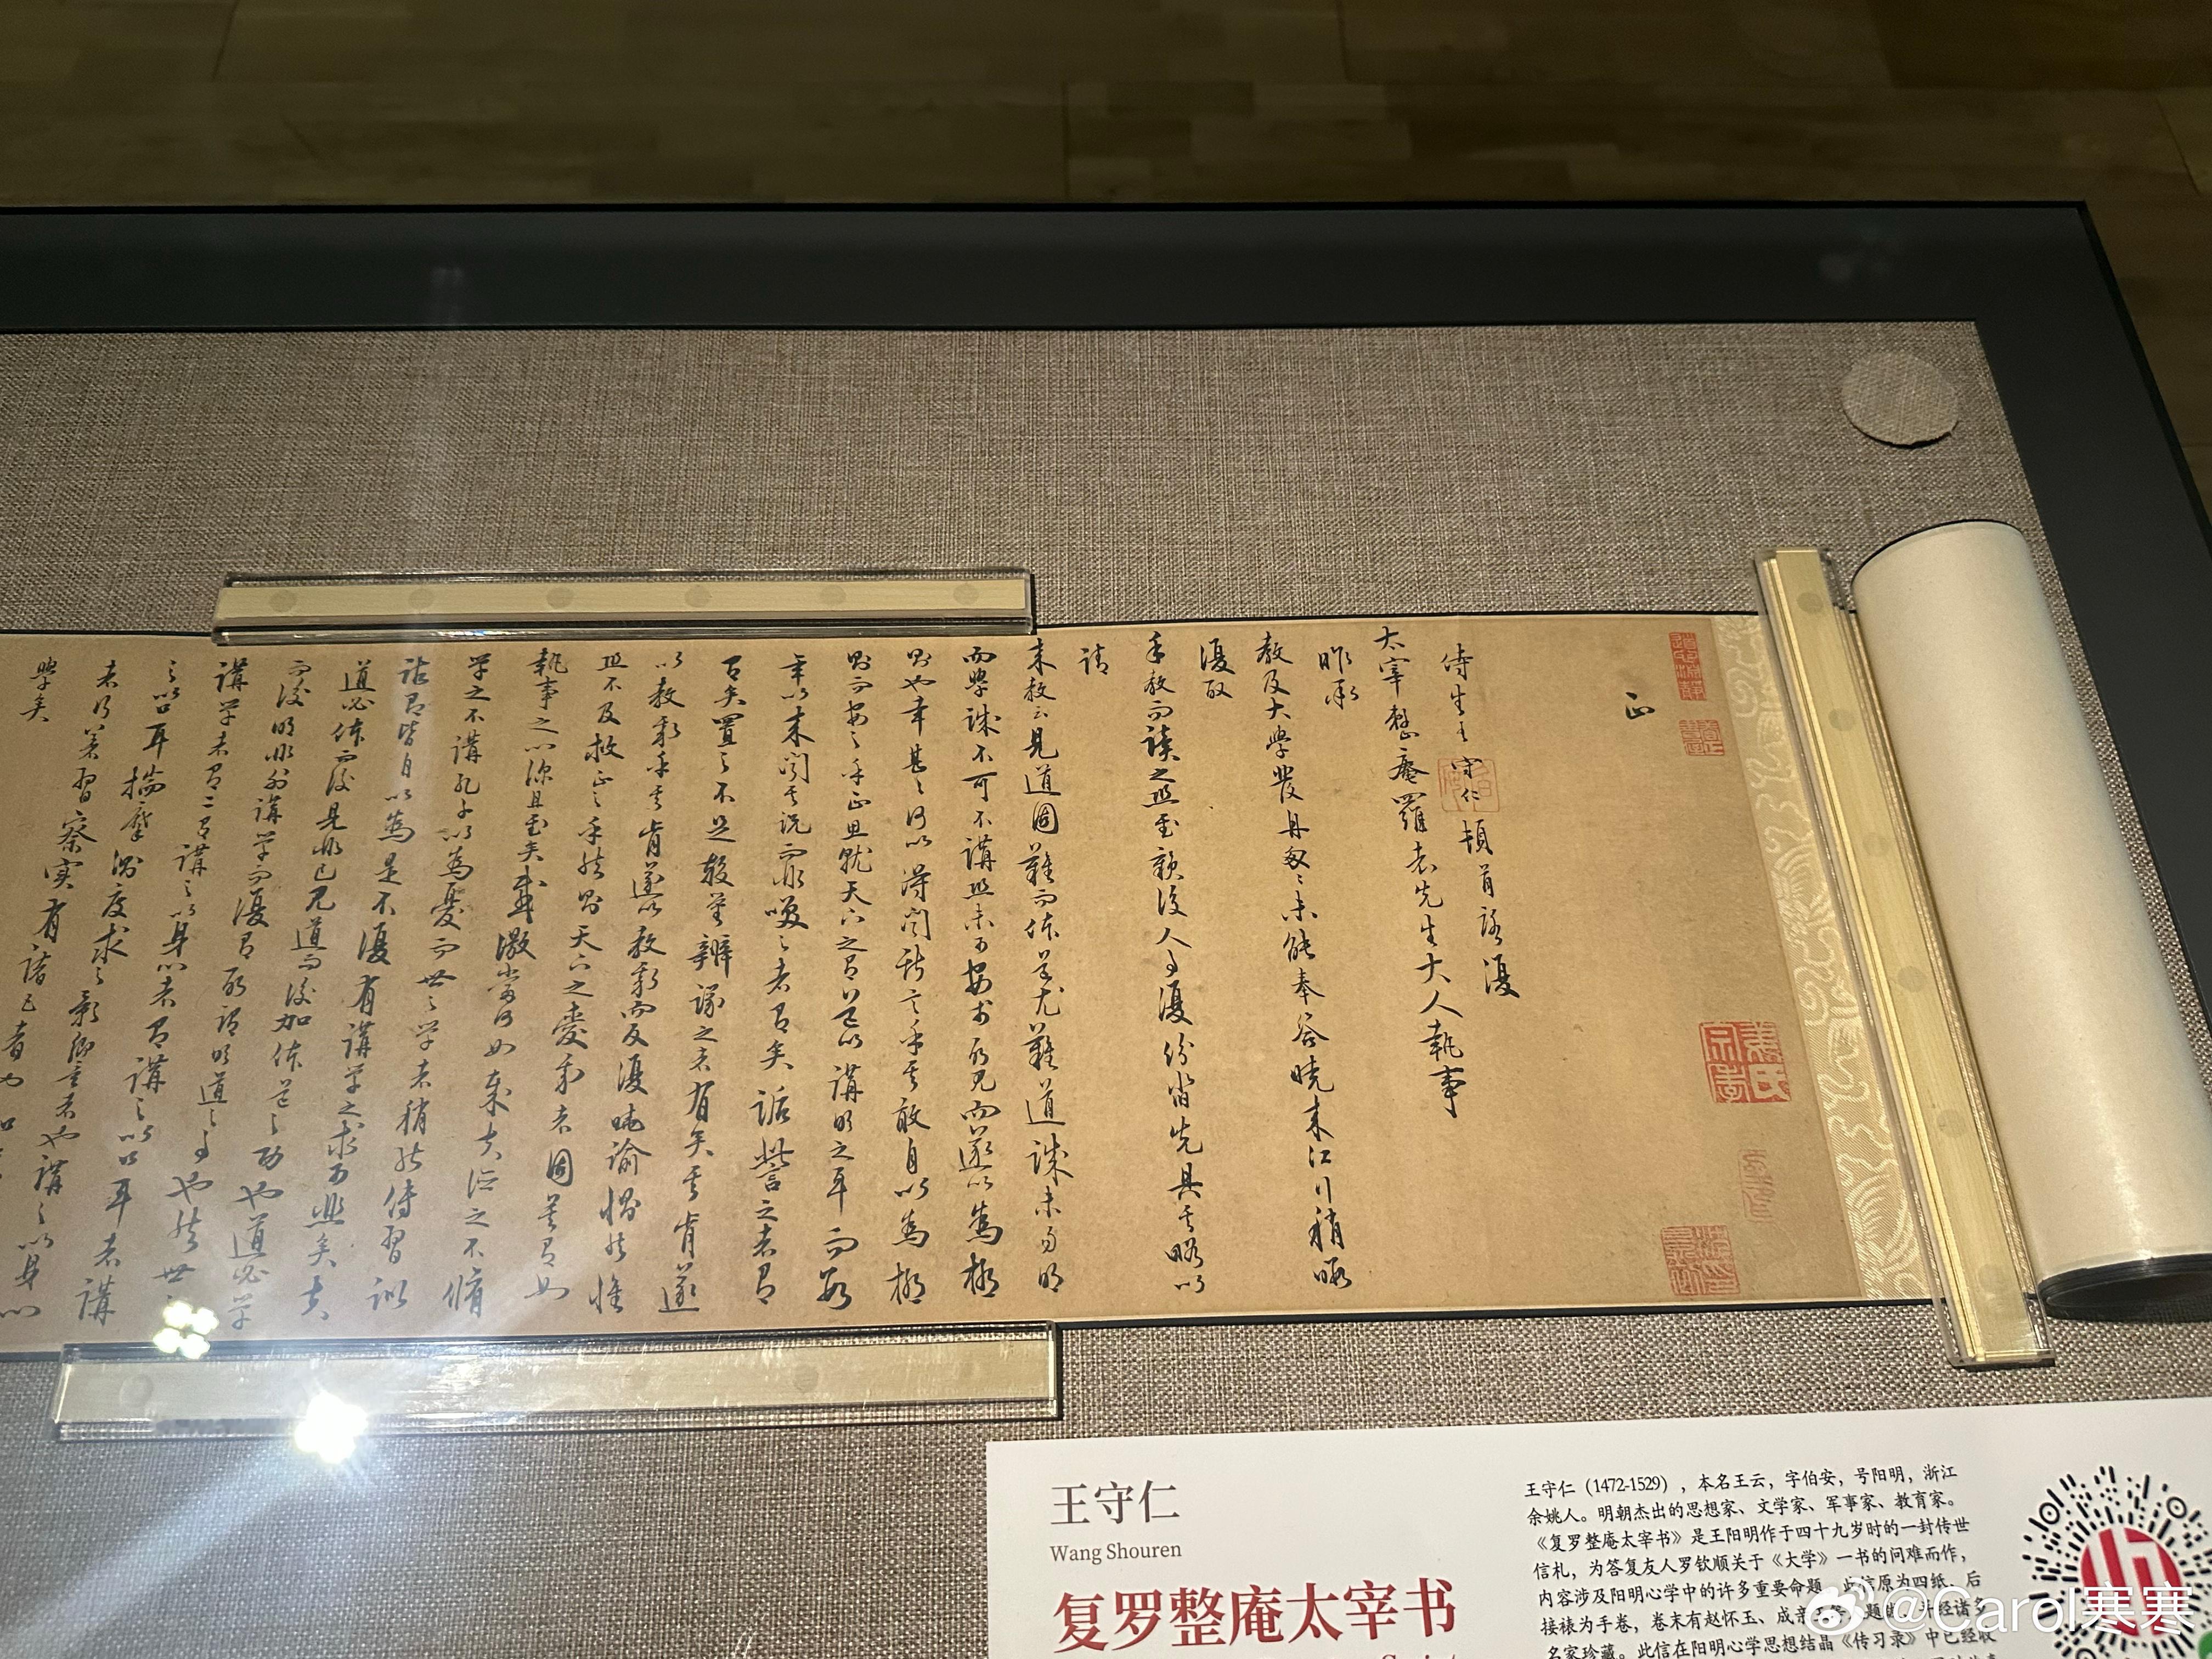 正
侍生王守仁頓首啓復
太宰整菴羅老先生大人執事
昨承
教及大學發舟匆匆未能奉答曉来江行稍暇
復取
手教而讀之恐至贛後人事復紛沓先具其略以
請
来教云見道固難而体道尤難道誠未易明
而學誠不可不講恐未可安於所見而遂以為極
則也幸甚幸甚何以得聞斯言乎其敢自以為極
則而安之乎正思就天下之有道以講明之耳而数
年以来聞其説而非咲之者有矣詬訾之者有
矣置之不足較量辨議之者有矣其肯遂
以教我乎其肯遂以教我而反復曉諭惻然惟
恐不及救正之乎然則天下之愛我者固莫有如
執事之心深且至矣感激當何如哉夫德之不脩
学之不講孔子以為憂而世之学者稍能傳習訓
詁即皆自以為是不復有講学之求可悲矣夫
道必体而後見非已見道而後加体道之功也道必学
而後明非外講学而復有所謂明道之事也然世之
講学者有二有講之以身心者有講之以口耳者講
之以口耳揣摩測度求之影響者也講之以身心
者行著習察實有諸己者也
學矣
王守仁
Wang Shouren
复罗整庵太宰书
王守仁（1472-1529），本名王云，字伯安，号阳明，浙江
余姚人。明朝杰出的思想家、文学家、军事家、教育家。
《复罗整庵太宰书》是王阳明作于四十九岁时的一封传世
信札，为答复友人罗钦顺关于《大学》一书的问难而作，
内容涉及阳明心学中的许多重要命题。此信原为四纸，后
接裱为手卷，卷末有赵怀玉、成亲王等题跋，并经诸多
名家珍藏。此信在阳明心学思想结晶《传习录》中已经收
@Carol寒寒